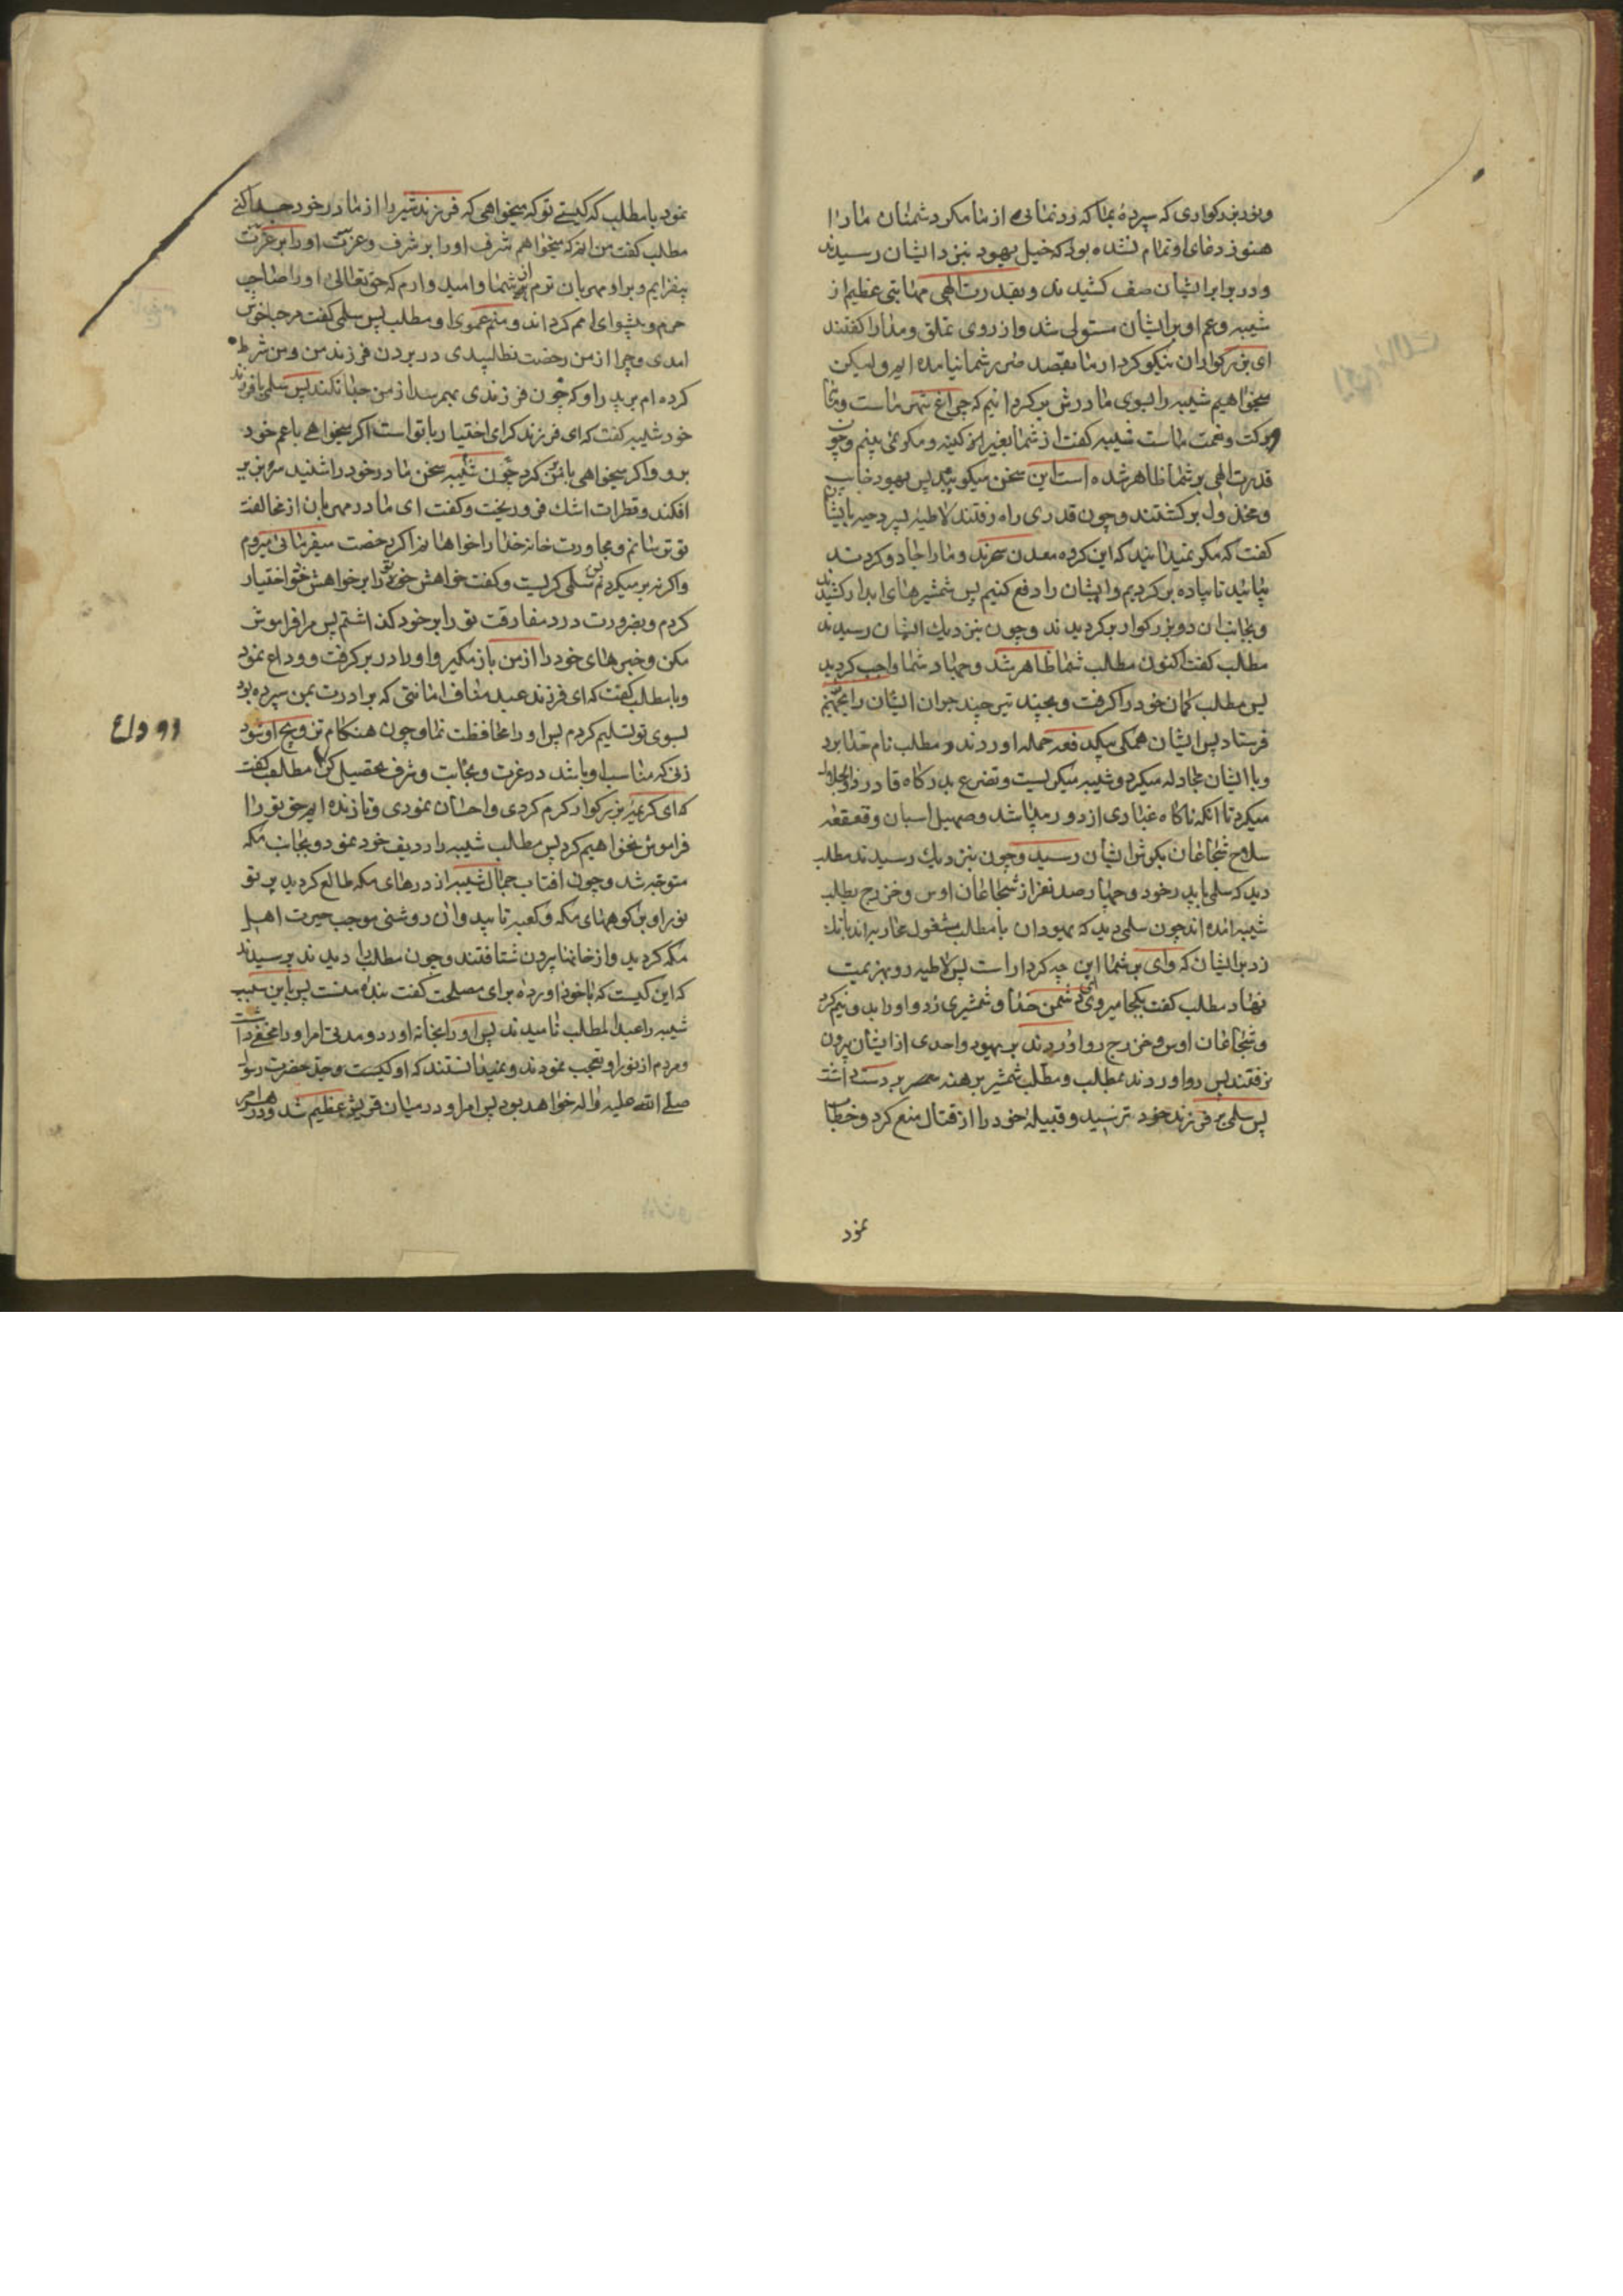 ونور بزرکواری که سپردهٔ بما که رد نمائی از ما مکر دشمنان ما را
هنوز دعای او تمام نشده بود که خیل یهود بنزد ایشان رسیدند
و در برابر ایشان صف کشیدند و بقدرت الهی مهابتی عظیم از
شیبه و عم او بر ایشان مستولی شد و از روی تملق و مدارا کفتند
ای بزرکواران نیکو کردار ما بقصد ضرر شما نیامده ایم ولیکن
میخواهیم شیبه را بسوی مادرش برکردانیم که چراغ شهر ماست و مایهٔ
برکت و نعمت ماست شیبه کفت از شما بغیر از کینه و مکر نمی بینم و چون
قدرت الهی بر شما ظاهر شده است این سخن میکوئید پس یهود خایب
و مخذول برکشتند و چون قدری راه رفتند لاطیه پسر دحیه با ایشان
کفت که مکر نمیدانید که این کرده معدن سحرند و ما را جادو کردند
بیائید تا پیاده برکردیم و ایشان را دفع کنیم پس شمشیرهای ابدار کشیدند
و بجانب ان دو بزرکوار برکردیدند و چون بنزدیك ایشان رسیدند
مطلب کفت اکنون مطلب شما ظاهر شد و جهاد شما واجب کردید
پس مطلب کمان خود را کرفت و بچند تیر چند جوان ایشان را بجهنم
فرستاد پس ایشان همکی بیکدفعه حمله اوردند و مطلب نام خدا برد
و با ایشان مجادله میکرد و شیبه میکریست و تضرع بدرکاه قادر ذو الجلال
میکرد تا انکه ناکاه غباری از دور پیدا شد و صهیل اسبان و قعقعه
سلاح شجاعان بکوش ایشان رسید و چون بنزدیك رسیدند مطلب
دید که سلمی با پدر خود و چهار صد نفر از شجاعان اوس و خزرج بطلب
شیبه امده اند چون سلمی دید که یهودان با مطلب مشغول محاربه اند بانك
زد بر ایشان که وای بر شما این چه کردار است پس لاطیه رو بهزیمت
نهاد مطلب کفت بکجا میروی ای دشمن خدا و شمشیری زد و او را بدو نیم کرد
و شجاعان اوس و خزرج رو اوردند بر یهود و احدی از ایشان بیرون
نرفتند پس رو اوردند بمطلب و مطلب شمشیر برهنه بر دست داشت
پس سلمی بر فرزند خود ترسید و قبیلهٔ خود را از قتال منع کرد و خطاب
نمود
نمود با مطلب که کیستی تو که میخواهی که فرزند شیر را از مادر خود جدا کنی
مطلب کفت من انم که میخواهم شرف او را بر شرف و عزت او را بر عزت
بیفزایم و بر او مهربان ترم از شما و امید وارم که حق تعالی او را صاحب
حرم و پیشوای امم کرداند و منم عموی او مطلب پس سلمی کفت مرحبا خوش
امدی و چرا از من رخصت نطلبیدی در بردن فرزند من و من شرط
کرده ام بر پدر او که چون فرزندی بهم رسد از من جدا نکند پس سلمی با فرزند
خود شیبه کفت که ای فرزند کرامی اختیار با تو است اکر میخواهی با عم خود
برو و اکر میخواهی با من برکرد چون شیبه سخن مادر خود را شنید سر بزیر
افکند و قطرات اشك فرو ریخت و کفت ای مادر مهربان از مخالفت
تو ترسانم و مجاورت خانه خدا را خواهانم اکر رخصت میفرمائی میروم
و اکر نه برمیکردم پس سلمی کریست و کفت خواهش تو را بر خواهش خود اختیار
کردم و بضرورت درد مفارقت تو را بر خود کذاشتم پس مرا فراموش
مکن و خبرهای خود را از من باز مکیر و او را در بر کرفت و وداع نمود
و با مطلب کفت که ای فرزند عبد مناف امانتی که برادرت بمن سپرده بود
بسوی تو تسلیم کردم پس او را محافظت نما و چون هنکام تزویج او شود
زنی که مناسب او باشد در عزت و نجابت و شرف تحصیل کن مطلب کفت
که ای کریمهٔ بزرکوار کرم کردی و احسان نمودی و تا زنده ایم حق تو را
فراموش نخواهیم کرد پس مطلب شیبه را ردیف خود نمود و بجانب مکه
متوجه شد و چون افتاب جمال شیبه از درهای مکه طالع کردید پرتو
نور او بر کوههای مکه و کعبه تابید و ان روشنی موجب حیرت اهل
مکه کردید و از خانها بیرون شتافتند و چون مطلب را دیدند پرسیدند
که این کیست که با خود اوردهٔ برای مصلحت کفت بندهٔ منست پس باین سبب
شیبه را عبد المطلب نامیدند پس او را بخانه اورد و مدتی امر او را مخفی داشت
و مردم از نور او تعجب نمودند و نمیدانستند که او کیست و جد حضرت رسول
صلی الله علیه و اله خواهد بود پس امر او در میان قریش عظیم شد و در هر امر